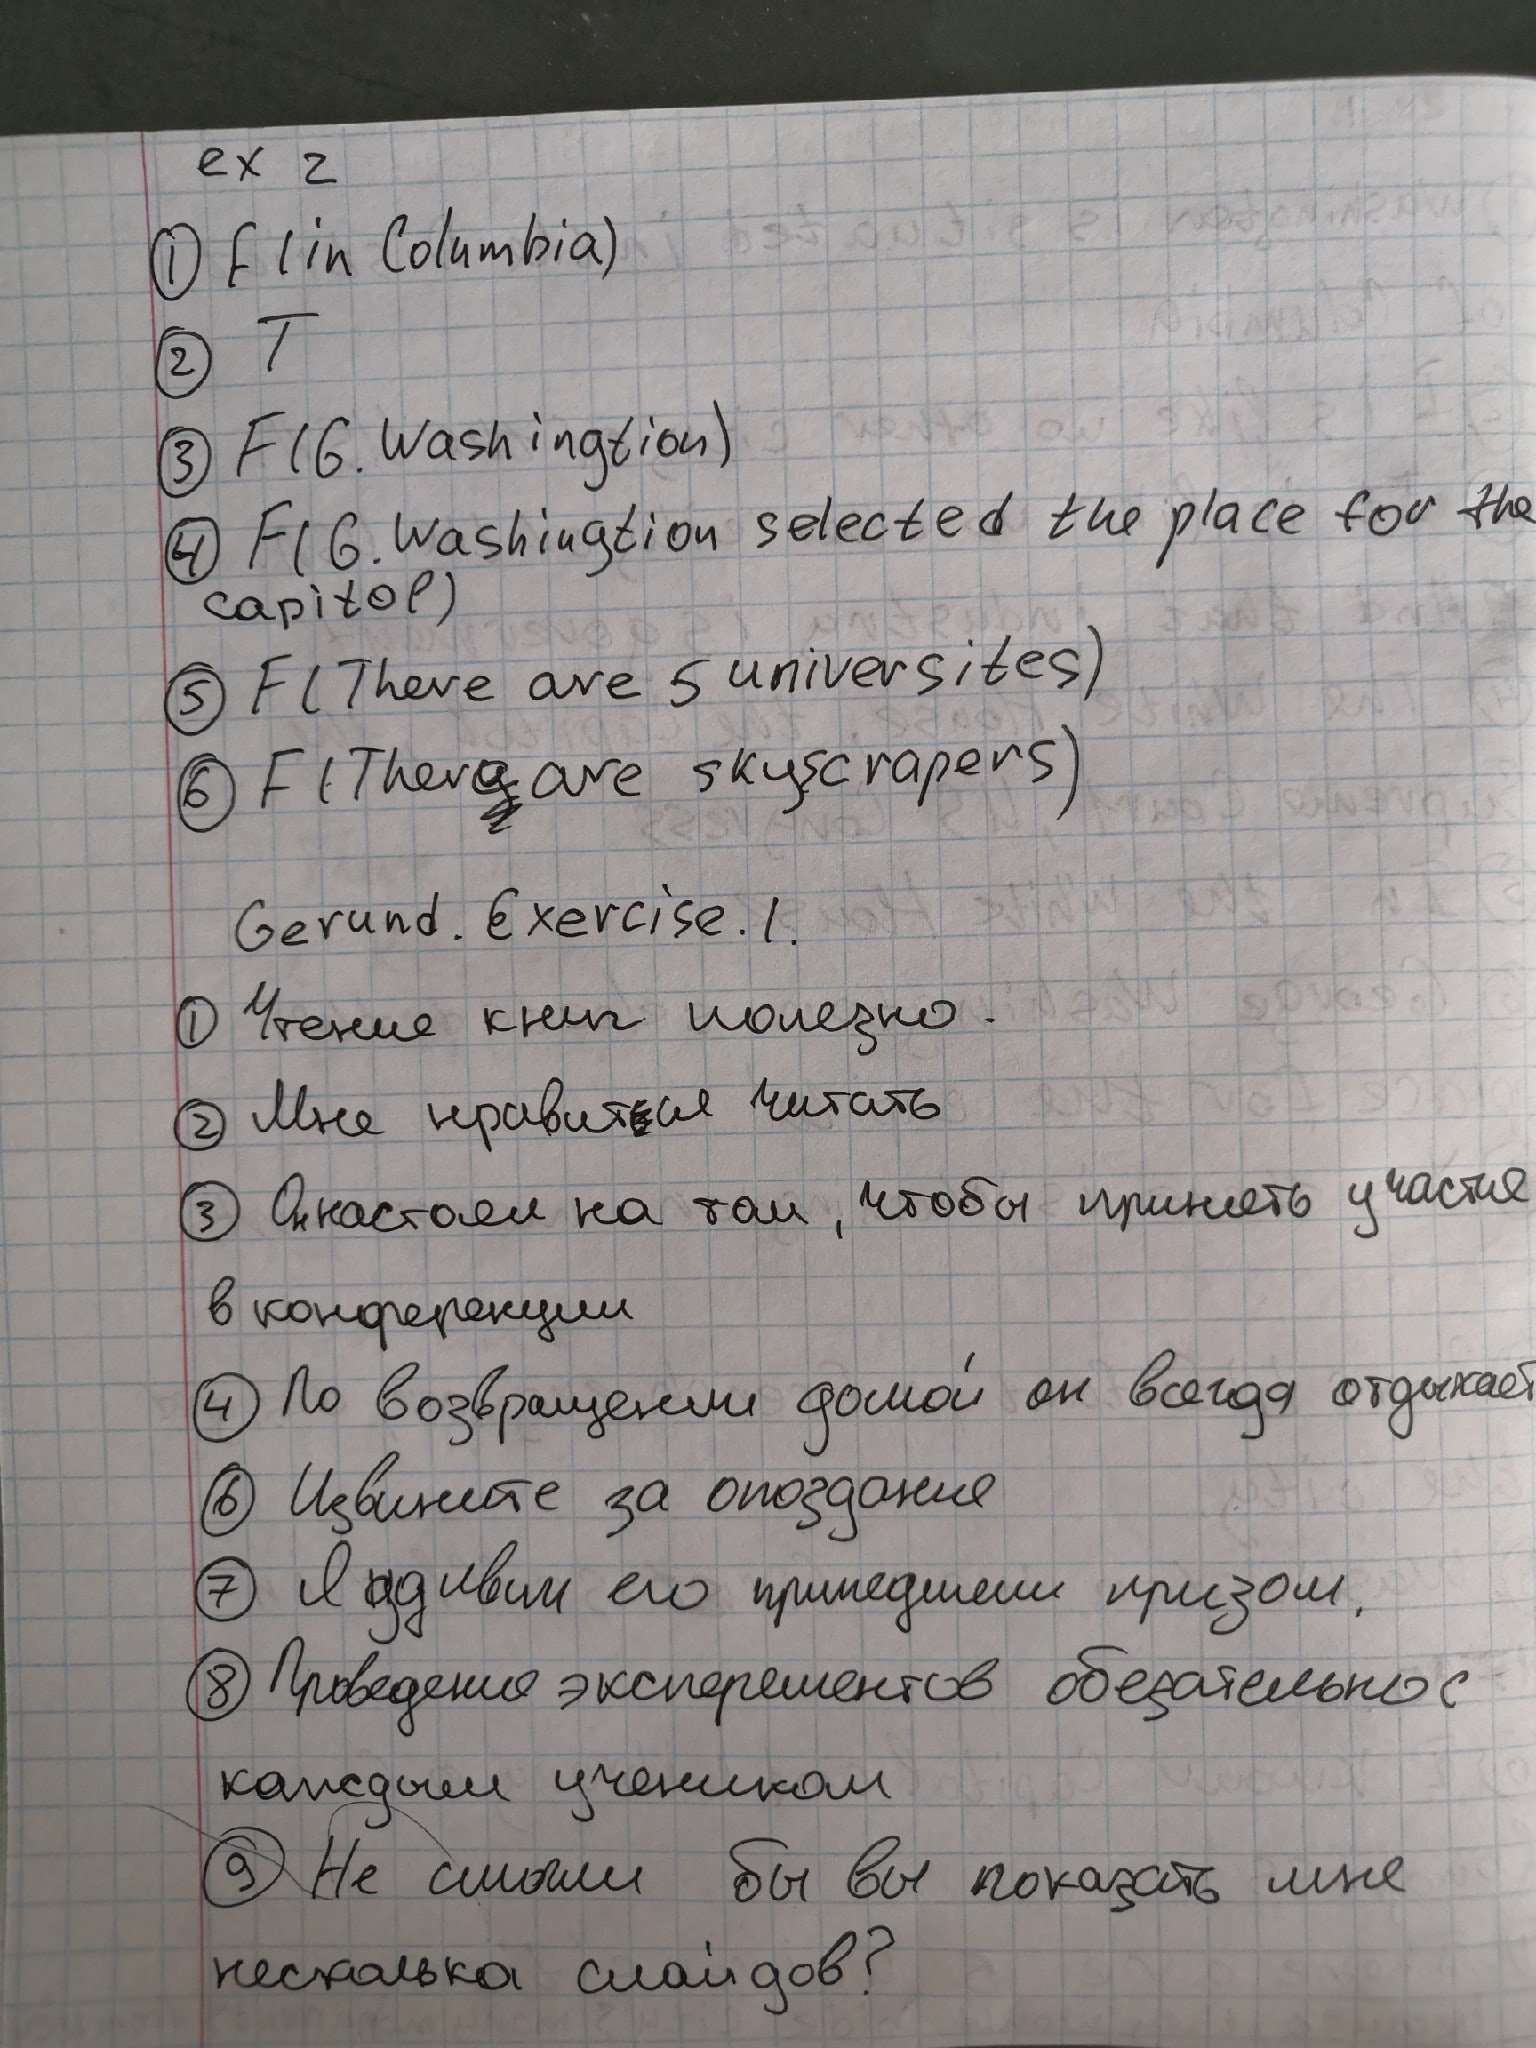 ex 2
① F (in Columbia)
② T
③ F (G. Washingtion)
④ F (G. Washingtion selected the place for the
capitol)
⑤ F (There are 5 universites)
⑥ F (There are skyscrapers)
Gerund. Exercise. 1.
① Чтение книг полезно.
② Мне нравится читать
③ Он настоял на том, чтобы принять участие
в конференции
④ По возвращении домой он всегда отдыхает
⑥ Извините за опоздание
⑦ Я удивил его пришедшим призом.
⑧ Проведение эксперементов обезательно с
каждым учеником
⑨ Не смогли бы вы показать мне
несколька слайдов?